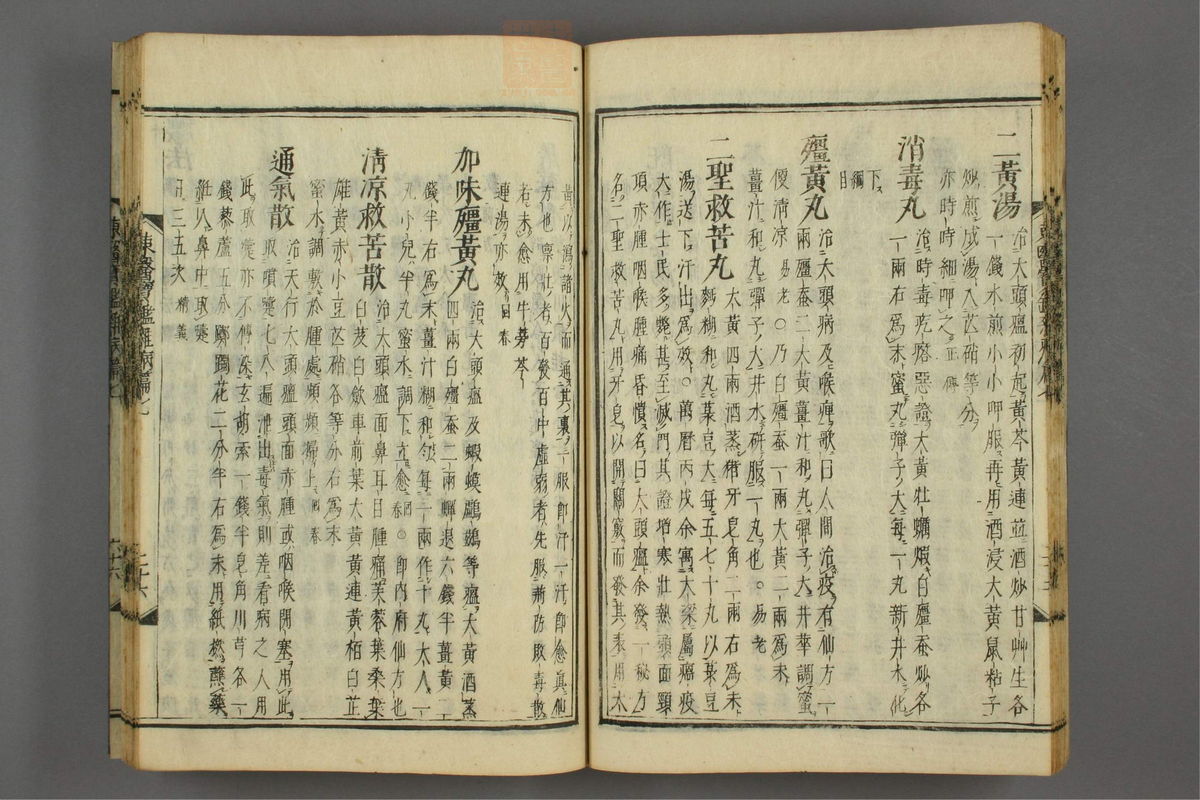 二黃湯 治大頭瘟初起黃芩黃連並酒炒甘艸生各
一錢水煎小小呷服再用酒浸大黃鼠粘子
炒煎成湯入芒硝等分
亦時時細呷之正傳
消毒丸 治時毒疙瘩惡證大黃牡蠣煆白殭蚕炒各
一兩右爲末蜜丸彈子大每一丸新井水化
下綱目
殭黃丸 治大頭病及喉痺歌曰人間治疫有仙方一
兩殭蚕二大黃薑汁和丸彈子大井華調蜜
便清凉易老○乃白殭蚕一兩大黃二兩爲末
薑汁和丸彈子大井水研服一丸也○易老
二聖救苦丸 大黃四兩酒蒸猪牙皂角二兩右爲末
麪糊和丸菉豆大每五七十丸以菉豆
湯送下汗出爲效○萬曆丙戌余寓大梁屬瘟疫
大作士民多斃甚至滅門其證增寒壯熱頭面頸
項赤腫咽喉腫痛昏憒名曰大頭瘟余發一秘方
名二聖救苦丸用牙皂以開關竅而發其表用大
黃以瀉諸火而通其裏一服卽汗一汗卽愈眞仙
方也稟壯者百發百中虛弱者先服荊防敗毒散
若未愈用牛蒡芩
連湯亦效回春
加味殭黃丸 治大頭瘟及蝦蟆鸕鶿等瘟大黃酒蒸
四兩白殭蚕二兩蟬退六錢半薑黃二
錢半右爲末薑汁糊和勻每一兩作十丸大人一
丸小兒半丸蜜水調下立愈回春○卽內府仙方也
清凉救苦散 治大頭瘟面鼻耳目腫痛芙蓉葉桑葉
白芨白歛車前葉大黃黃連黃栢白芷
雄黃赤小豆芒硝各等分右爲末
蜜水調敷於腫處頻頻掃上回春
通氣散 治天行大頭瘟頭面赤腫或咽喉閉塞用此
取嚏嚔七八遍泄出毒氣則差看病之人用
此取嚏亦不傳染玄胡索一錢半皂角川芎各一
錢藜蘆五分躑躅花二分半右爲末用紙撚蘸藥
紝入鼻中取嚏
日三五次精義
東醫寶鑑雜病篇七
二十六